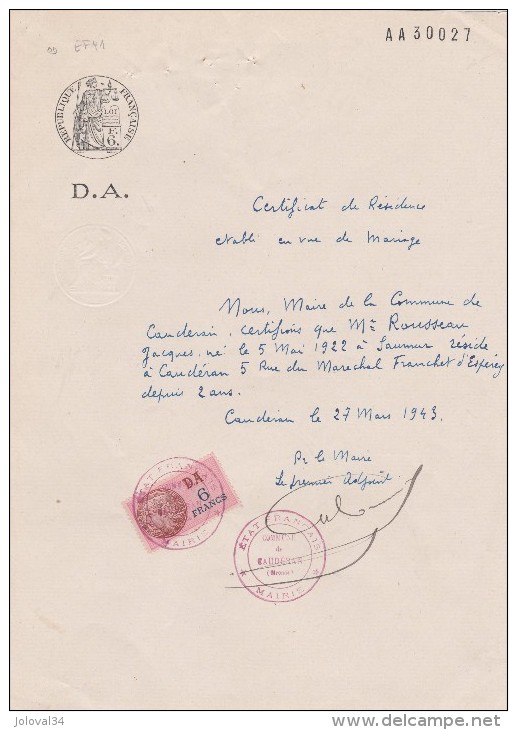 EF41
AA30027
RÉPUBLIQUE FRANÇAISE
LOI
F.
6.
D.A.
Certificat de Résidence
etabli en vue de Mariage
Nous, Maire de la Commune de
Cauderan, certifions que Mr Rousseau
Jacques, né le 5 Mai 1922 à Saumur réside
à Caudéran 5 Rue du Marechal Franchet d'Espérey
depuis 2 ans.
Cauderan le 27 Mars 1943.
Pr le Maire
Le premier Adjoint
ETAT FRANÇAIS
DA
6
FRANCS
MAIRIE
ÉTAT FRANÇAIS
COMMUNE
de
CAUDERAN
(Gironde)
MAIRIE
joloval34
www.delcampe.net